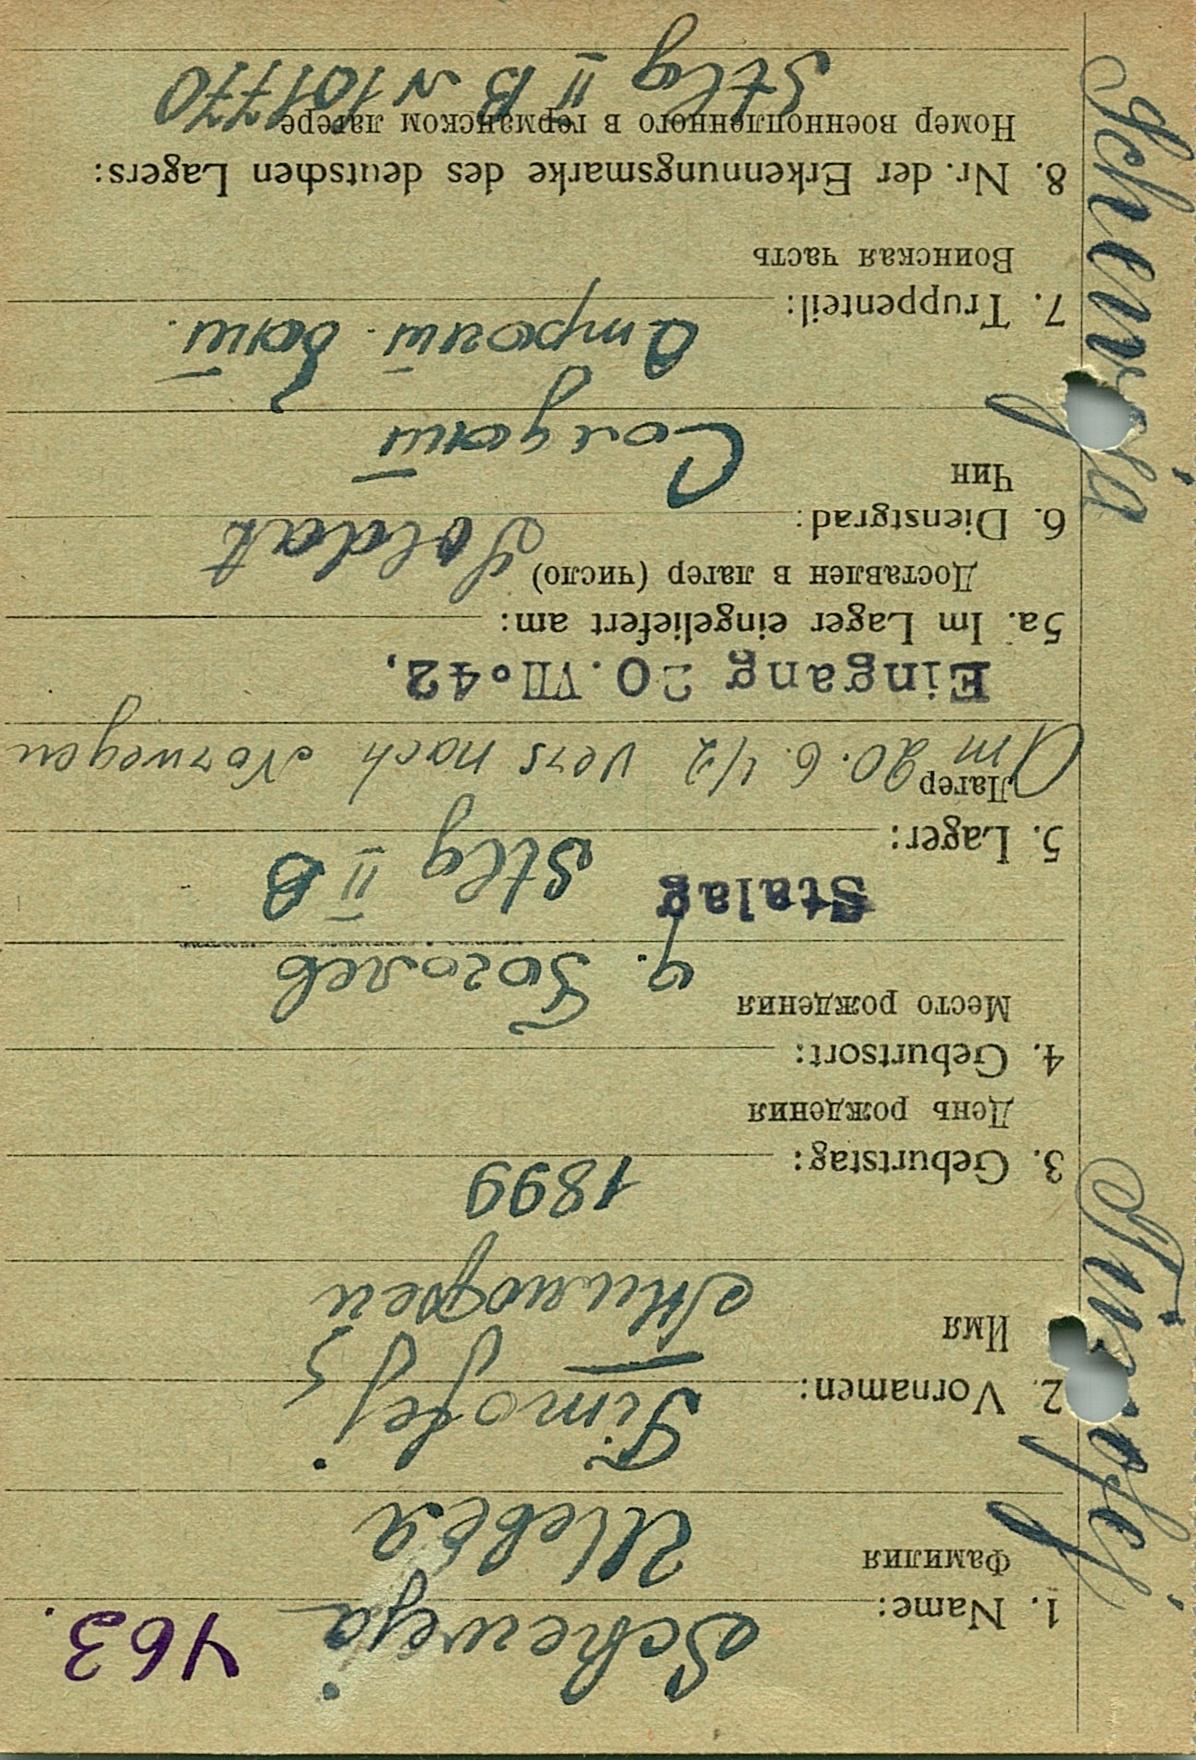 463.
Scheweja
1. Name:
Фамилия
Шевея
Timofej
2. Vornamen:
Имя
Тимофеи
1899
3. Geburtstag:
День рождения
4. Geburtsort:
Место рождения
Stalag Stlg II B
5. Lager:
Лагер
Am 20. 6. 42 vers nach Norwegen
Eingang 20. VII. 42.
5a. Im Lager eingeliefert am:
Доставлен в лагер (число)
Soldat
6. Dienstgrad:
Чин
Солдат
Строит. бат.
7. Truppenteil:
Воинская часть
8. Nr. der Erkennungsmarke des deutschen Lagers:
Номер военнопленного в германском лагере
Stlg II B N 101770
Timofej